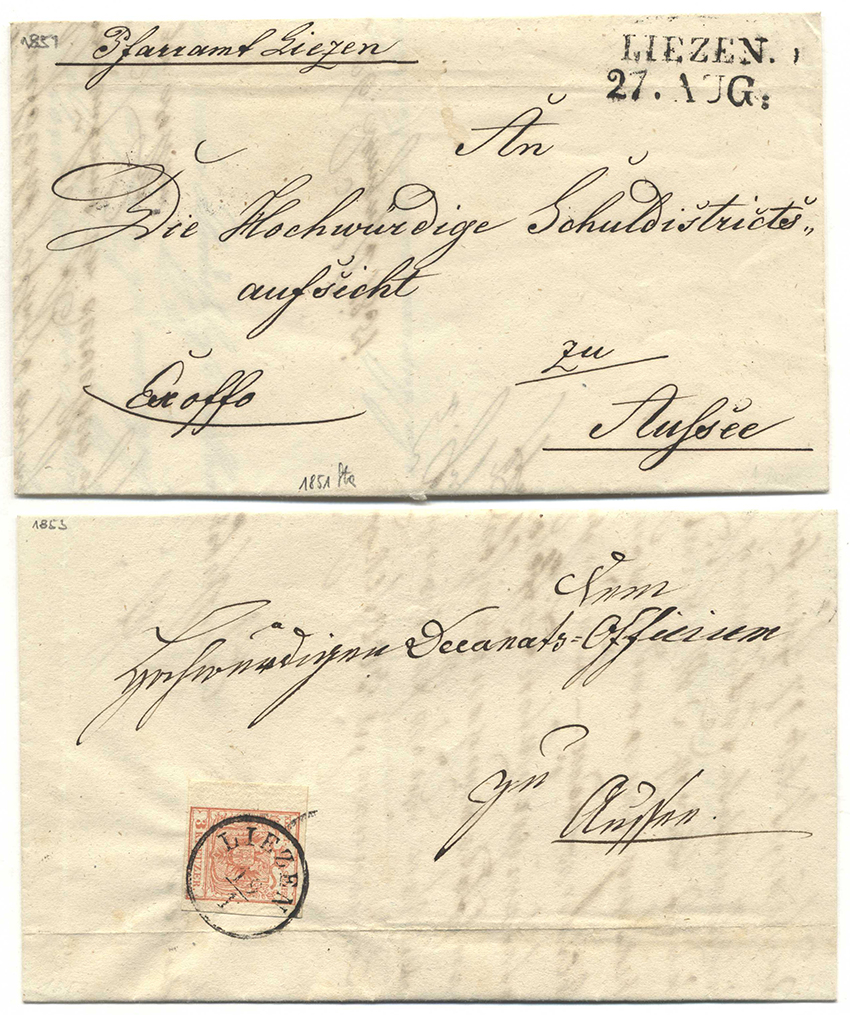 1851
Pfarramt Liezen
LIEZEN.
27. AUG:
An
Die Hochwürdige Schuldistricts„
aufsicht
zu
Exoffo
Aussee
1851
1853
Dem
Hochwürdigen Decanats=Officium
zu
Aussee.
LIEZEN
3